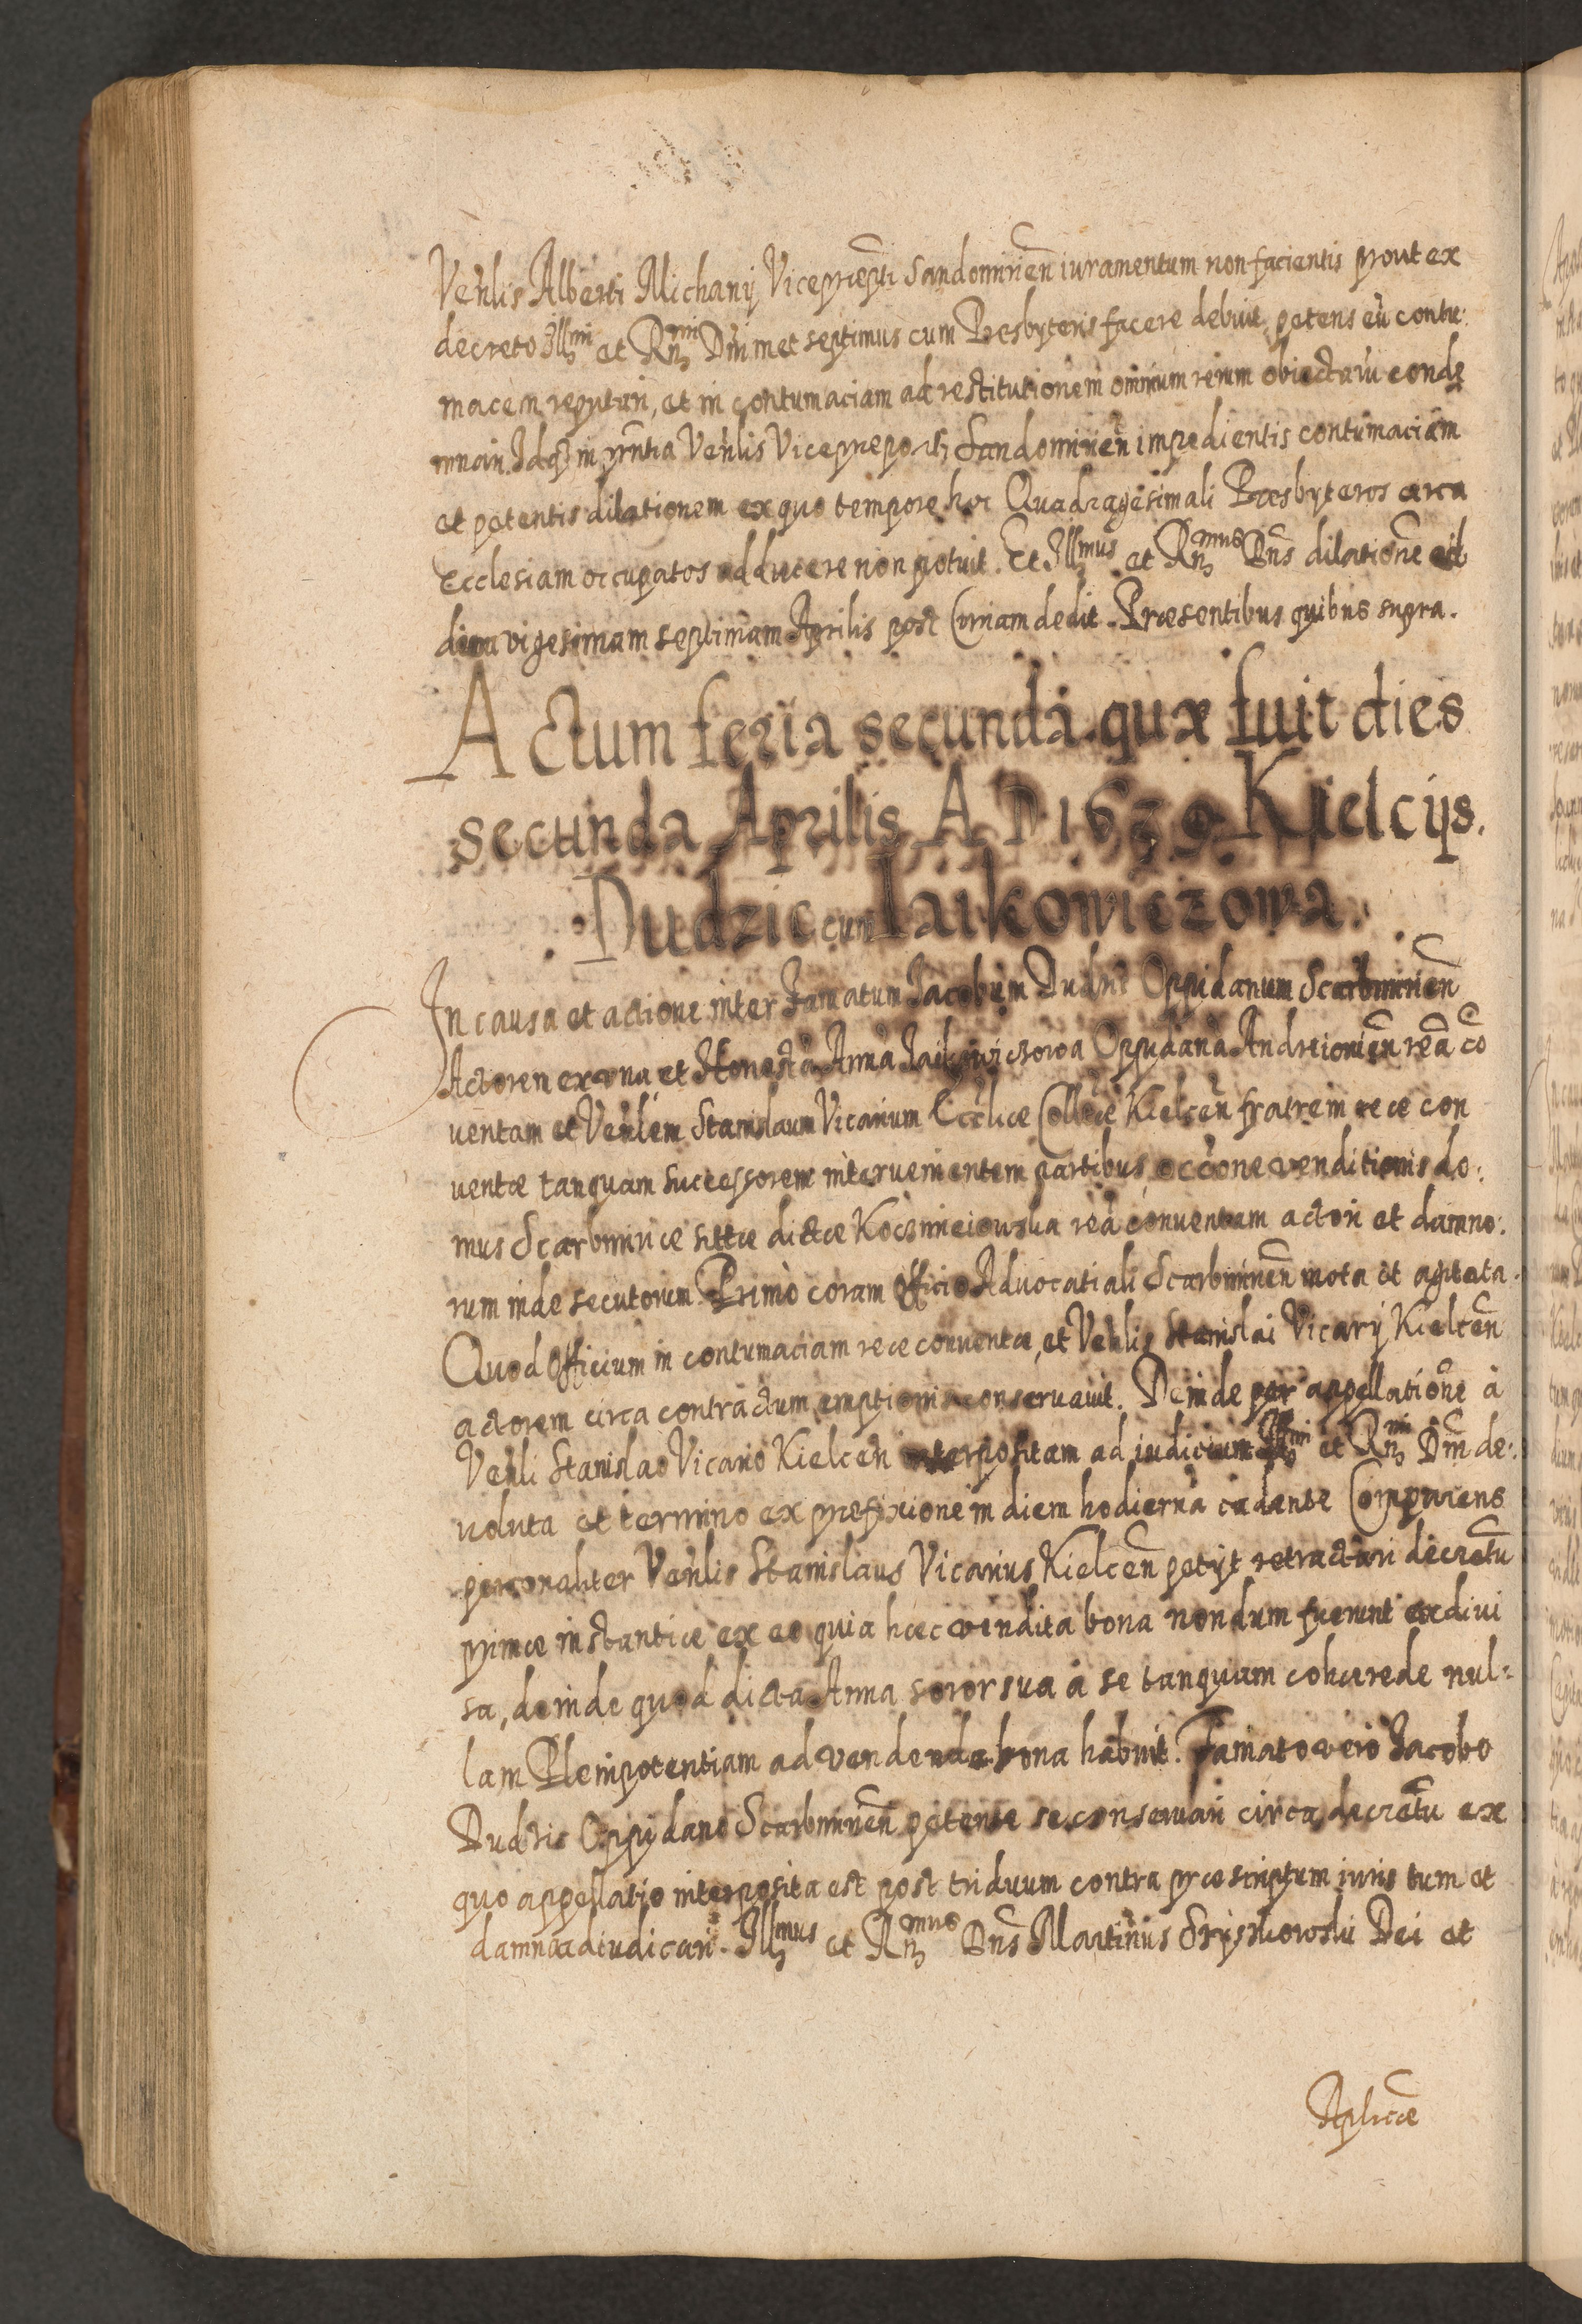 Venlis Alberti Michany Viceprepti Sandomirien iuramentum non facientis prout ex
decreto Illmi et Rmi Dni met septimus cum Presbyteris facere debuit, petens eu contu:
macem reputari, et in contumaciam ad restitutionem omnium rerum obiectaru conde
mnari. Idq3 in pntia Venlis Viceprepoti Sandomirien impedientis contumaciam
et petentis dilationem ex quo tempore hoc Quadragesimali Præsbyteros circa
Ecclesiam occupatos adducere non potuit. Et Illmus et Rmus Dns dilatione ad
diem vigesimam septimam Aprilis post Curiam dedit. Præsentibus quibus supra.
Actum feria secunda quæ fuit dies
secunda Aprilis A D 1639 Kielcijs.
Dudzic cum Iaikowiczowa.
In causa et actione inter Famatum Iacobum Dudzic Oppidanum Scarbimirien
Actorem ex vna et Honesta Anna Iaikowiczowa Oppidana Andreiouien rea co
uentam et Venlem Stanislaum Vicarium Ecclicæ Collecæ Kielcen fratrem reæ con
uentæ tanquam successorem interuenientem partibus occone venditionis do:
mus Scarbimiriæ sittæ dictæ Koczmieiowska rea conuentam actori et damno:
rum inde secutorum Primò coram Officio Aduocatiali Scarbimirien mota et agitata.
Quod Officium in contumaciam reæ conuentæ, et Venlis Stanislai Vicarÿ Kielcen
actorem circa contractum emptionis conseruauit. Deinde per appellatione à
Venli Stanislao Vicario Kielcen interpositam ad iudicium Illmi et Rmi Dni de:
uoluta et termino ex prefixione in diem hodierna cadente Comparens
personaliter Venlis Stanislaus Vicarius Kielcen petijt retractari decretu
primæ instantiæ ex eo quia hæc vendita bona nondum fuerunt ex diui
sa, deinde quod dicta Anna soror sua à se tanquam cohærede nul=
lam Plenipotentiam ad vendenda bona habuit. Famato vero Iacobo
Dudzic Oppidano Scarbimirien petente se conseruari circa decretu ex
quo appellatio interposita est post triduum contra præscriptum iuris tum et
damna adiudicari. Illmus et Rmus Dns Martinus Szyszkowski Dei et
Aplicæ